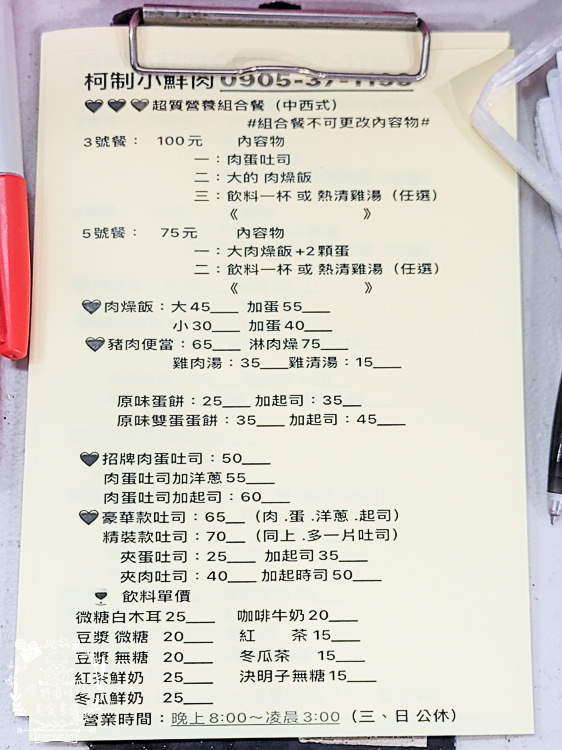 柯制小鮮肉 0905-37-1198
🖤🖤🖤超質營養組合餐（中西式）
#組合餐不可更改內容物#
3號餐： 100元 內容物
一：肉蛋吐司
二：大的 肉燥飯
三：飲料一杯 或 熱清雞湯（任選）
《 》
5號餐： 75元 內容物
一：大肉燥飯+2顆蛋
二：飲料一杯 或 熱清雞湯（任選）
《 》
🖤肉燥飯：大45___ 加蛋55___
小30___ 加蛋40___
🖤豬肉便當：65___ 淋肉燥75___
雞肉湯：35___雞清湯：15___
原味蛋餅：25___ 加起司：35__
原味雙蛋蛋餅：35___ 加起司：45___
🖤招牌肉蛋吐司：50___
肉蛋吐司加洋蔥55___
肉蛋吐司加起司：60___
🖤豪華款吐司：65__（肉.蛋.洋蔥.起司）
精裝款吐司：70__（同上.多一片吐司）
夾蛋吐司：25___ 加起司35___
夾肉吐司：40___ 加起時司50___
🍷 飲料單價
微糖白木耳25___ 咖啡牛奶20___
豆漿 微糖 20___ 紅 茶15___
豆漿 無糖 20___ 冬瓜茶 15___
紅茶鮮奶 25___ 決明子無糖15___
冬瓜鮮奶 25___
營業時間：晚上8:00～凌晨3:00（三、日 公休）